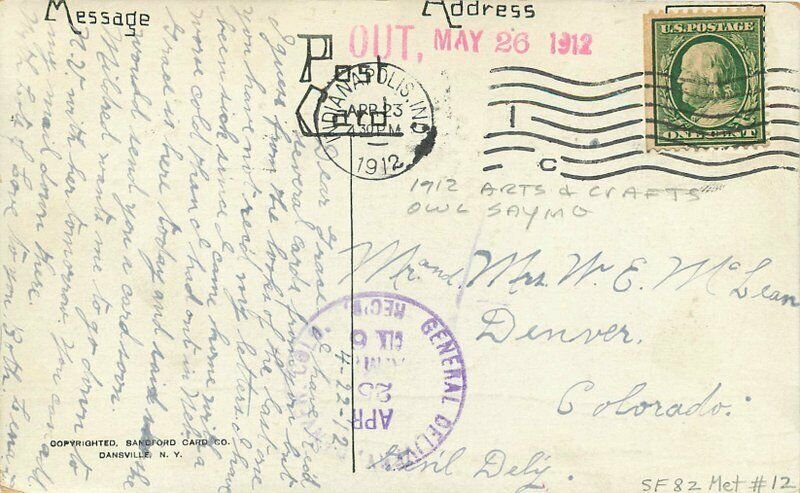 Message
Address
Post
Card
OUT, MAY 26 1912
INDIANAPOLIS IND
APR 23
4 30 P.M.
1912
U.S. POSTAGE
ONE CENT
1
C
1912 ARTS & CRAFTS
OWL SAYMO
Mr. and. Mrs. W. E. McLean
Denver.
Colorado.
Genl Dely.
GENERAL DELIVERY
APR
25
A.M.
CLK 6
REC'D.
4-22-12
Dear Grace
I have recd
several cards from you but
I guess from the looks of the last one
you have not recd my letters. I have
been sick since I came home with a
worse cold than I had out in
is here today and said she
would send you a card soon
Mildred wants me to go down to
N.V. with her tomorrow. You can all
my mail down here.
Lots of Love to you Both
COPYRIGHTED, SANDFORD CARD CO.
DANSVILLE, N. Y.
SF82 Met #12